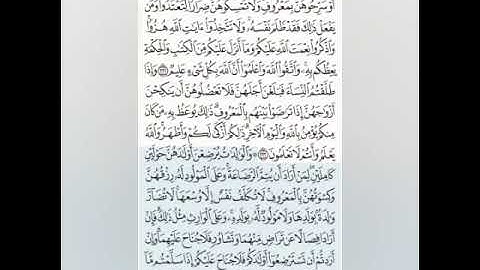 أَوْ سَرِّحُوهُنَّ بِمَعْرُوفٍ وَلَا تُمْسِكُوهُنَّ ضِرَارًا لِّتَعْتَدُوا۟ وَمَن
يَفْعَلْ ذَٰلِكَ فَقَدْ ظَلَمَ نَفْسَهُۥ وَلَا تَتَّخِذُوٓا۟ ءَايَـٰتِ ٱللَّهِ هُزُوًا
وَٱذْكُرُوا۟ نِعْمَتَ ٱللَّهِ عَلَيْكُمْ وَمَآ أَنزَلَ عَلَيْكُم مِّنَ ٱلْكِتَـٰبِ وَٱلْحِكْمَةِ
يَعِظُكُم بِهِۦ وَٱتَّقُوا۟ ٱللَّهَ وَٱعْلَمُوٓا۟ أَنَّ ٱللَّهَ بِكُلِّ شَىْءٍ عَلِيمٌ ۝٢٣١ وَإِذَا
طَلَّقْتُمُ ٱلنِّسَآءَ فَبَلَغْنَ أَجَلَهُنَّ فَلَا تَعْضُلُوهُنَّ أَن يَنكِحْنَ
أَزْوَٰجَهُنَّ إِذَا تَرَٰضَوْا۟ بَيْنَهُم بِٱلْمَعْرُوفِ ذَٰلِكَ يُوعَظُ بِهِۦ مَن كَانَ
مِنكُمْ يُؤْمِنُ بِٱللَّهِ وَٱلْيَوْمِ ٱلْـَٔاخِرِ ذَٰلِكُمْ أَزْكَىٰ لَكُمْ وَأَطْهَرُ وَٱللَّهُ
يَعْلَمُ وَأَنتُمْ لَا تَعْلَمُونَ ۝٢٣٢ وَٱلْوَٰلِدَٰتُ يُرْضِعْنَ أَوْلَـٰدَهُنَّ حَوْلَيْنِ
كَامِلَيْنِ لِمَنْ أَرَادَ أَن يُتِمَّ ٱلرَّضَاعَةَ وَعَلَى ٱلْمَوْلُودِ لَهُۥ رِزْقُهُنَّ
وَكِسْوَتُهُنَّ بِٱلْمَعْرُوفِ لَا تُكَلَّفُ نَفْسٌ إِلَّا وُسْعَهَا لَا تُضَآرَّ
وَٰلِدَةٌۢ بِوَلَدِهَا وَلَا مَوْلُودٌ لَّهُۥ بِوَلَدِهِۦ وَعَلَى ٱلْوَارِثِ مِثْلُ ذَٰلِكَ فَإِنْ
أَرَادَا فِصَالًا عَن تَرَاضٍ مِّنْهُمَا وَتَشَاوُرٍ فَلَا جُنَاحَ عَلَيْهِمَا وَإِنْ
أَرَدتُّمْ أَن تَسْتَرْضِعُوٓا۟ أَوْلَـٰدَكُمْ فَلَا جُنَاحَ عَلَيْكُمْ إِذَا سَلَّمْتُم مَّآ